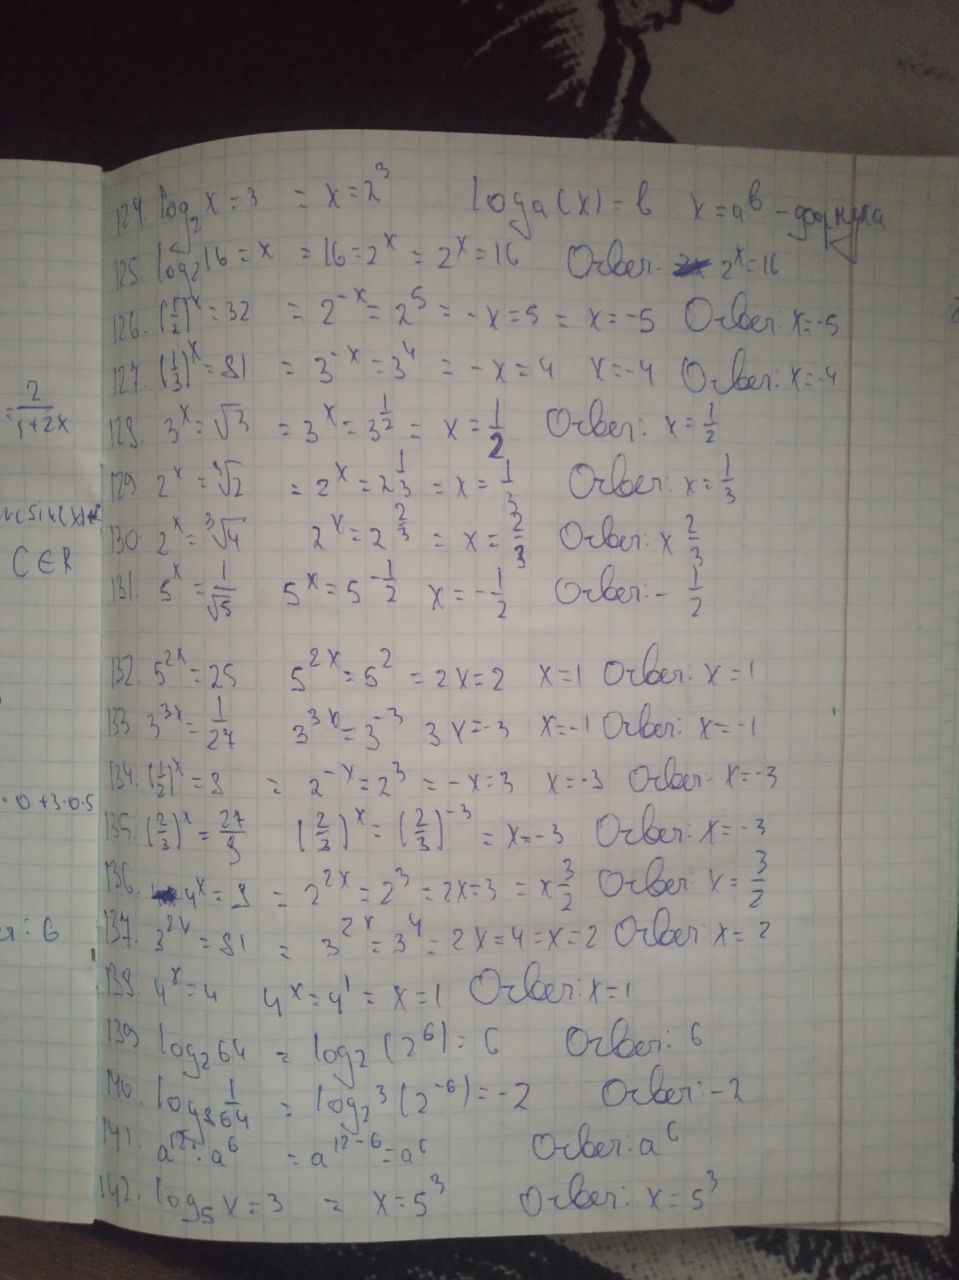 124. log₂x=3 = x=2³ logₐ(x)=b x=aᵇ - формула
125. log₂16=x = 16=2ˣ = 2ˣ=16 Ответ: 2ˣ=16
126. (1/2)ˣ=32 = 2⁻ˣ=2⁵ = -x=5 = x=-5 Ответ: x=-5
127. (1/3)ˣ=81 = 3⁻ˣ=3⁴ = -x=4 x=-4 Ответ: x=-4
128. 3ˣ=√3 = 3ˣ=3^(1/2) = x=1/2 Ответ: x=1/2
129. 2ˣ=³√2 = 2ˣ=2^(1/3) = x=1/3 Ответ: x=1/3
130. 2ˣ=³√4 2ˣ=2^(2/3) = x=2/3 Ответ: x 2/3
131. 5ˣ=1/√5 5ˣ=5^(-1/2) x=-1/2 Ответ: -1/2
132. 5²ˣ=25 5²ˣ=5² = 2x=2 x=1 Ответ: x=1
133. 3³ˣ=1/27 3³ˣ=3⁻³ 3x=-3 x=-1 Ответ: x=-1
134. (1/2)ˣ=8 = 2⁻ˣ=2³ = -x=3 x=-3 Ответ: x=-3
135. (2/3)ˣ=27/8 (2/3)ˣ=(2/3)⁻³ = x=-3 Ответ: x=-3
136. 4ˣ=8 = 2²ˣ=2³ = 2x=3 = x 3/2 Ответ: x=3/2
137. 3²ˣ=81 = 3²ˣ=3⁴ = 2x=4=x=2 Ответ: x=2
138. 4ˣ=4 4ˣ=4¹ = x=1 Ответ: x=1
139. log₂64 = log₂(2⁶)=6 Ответ: 6
140. log₈ 1/64 = log₂³(2⁻⁶)=-2 Ответ: -2
141. a¹²:a⁶ = a¹²⁻⁶=a⁶ Ответ: a⁶
142. log₅x=3 = x=5³ Ответ: x=5³
=2/(1+2x)
C∈R
·0+3·0.5
: 6